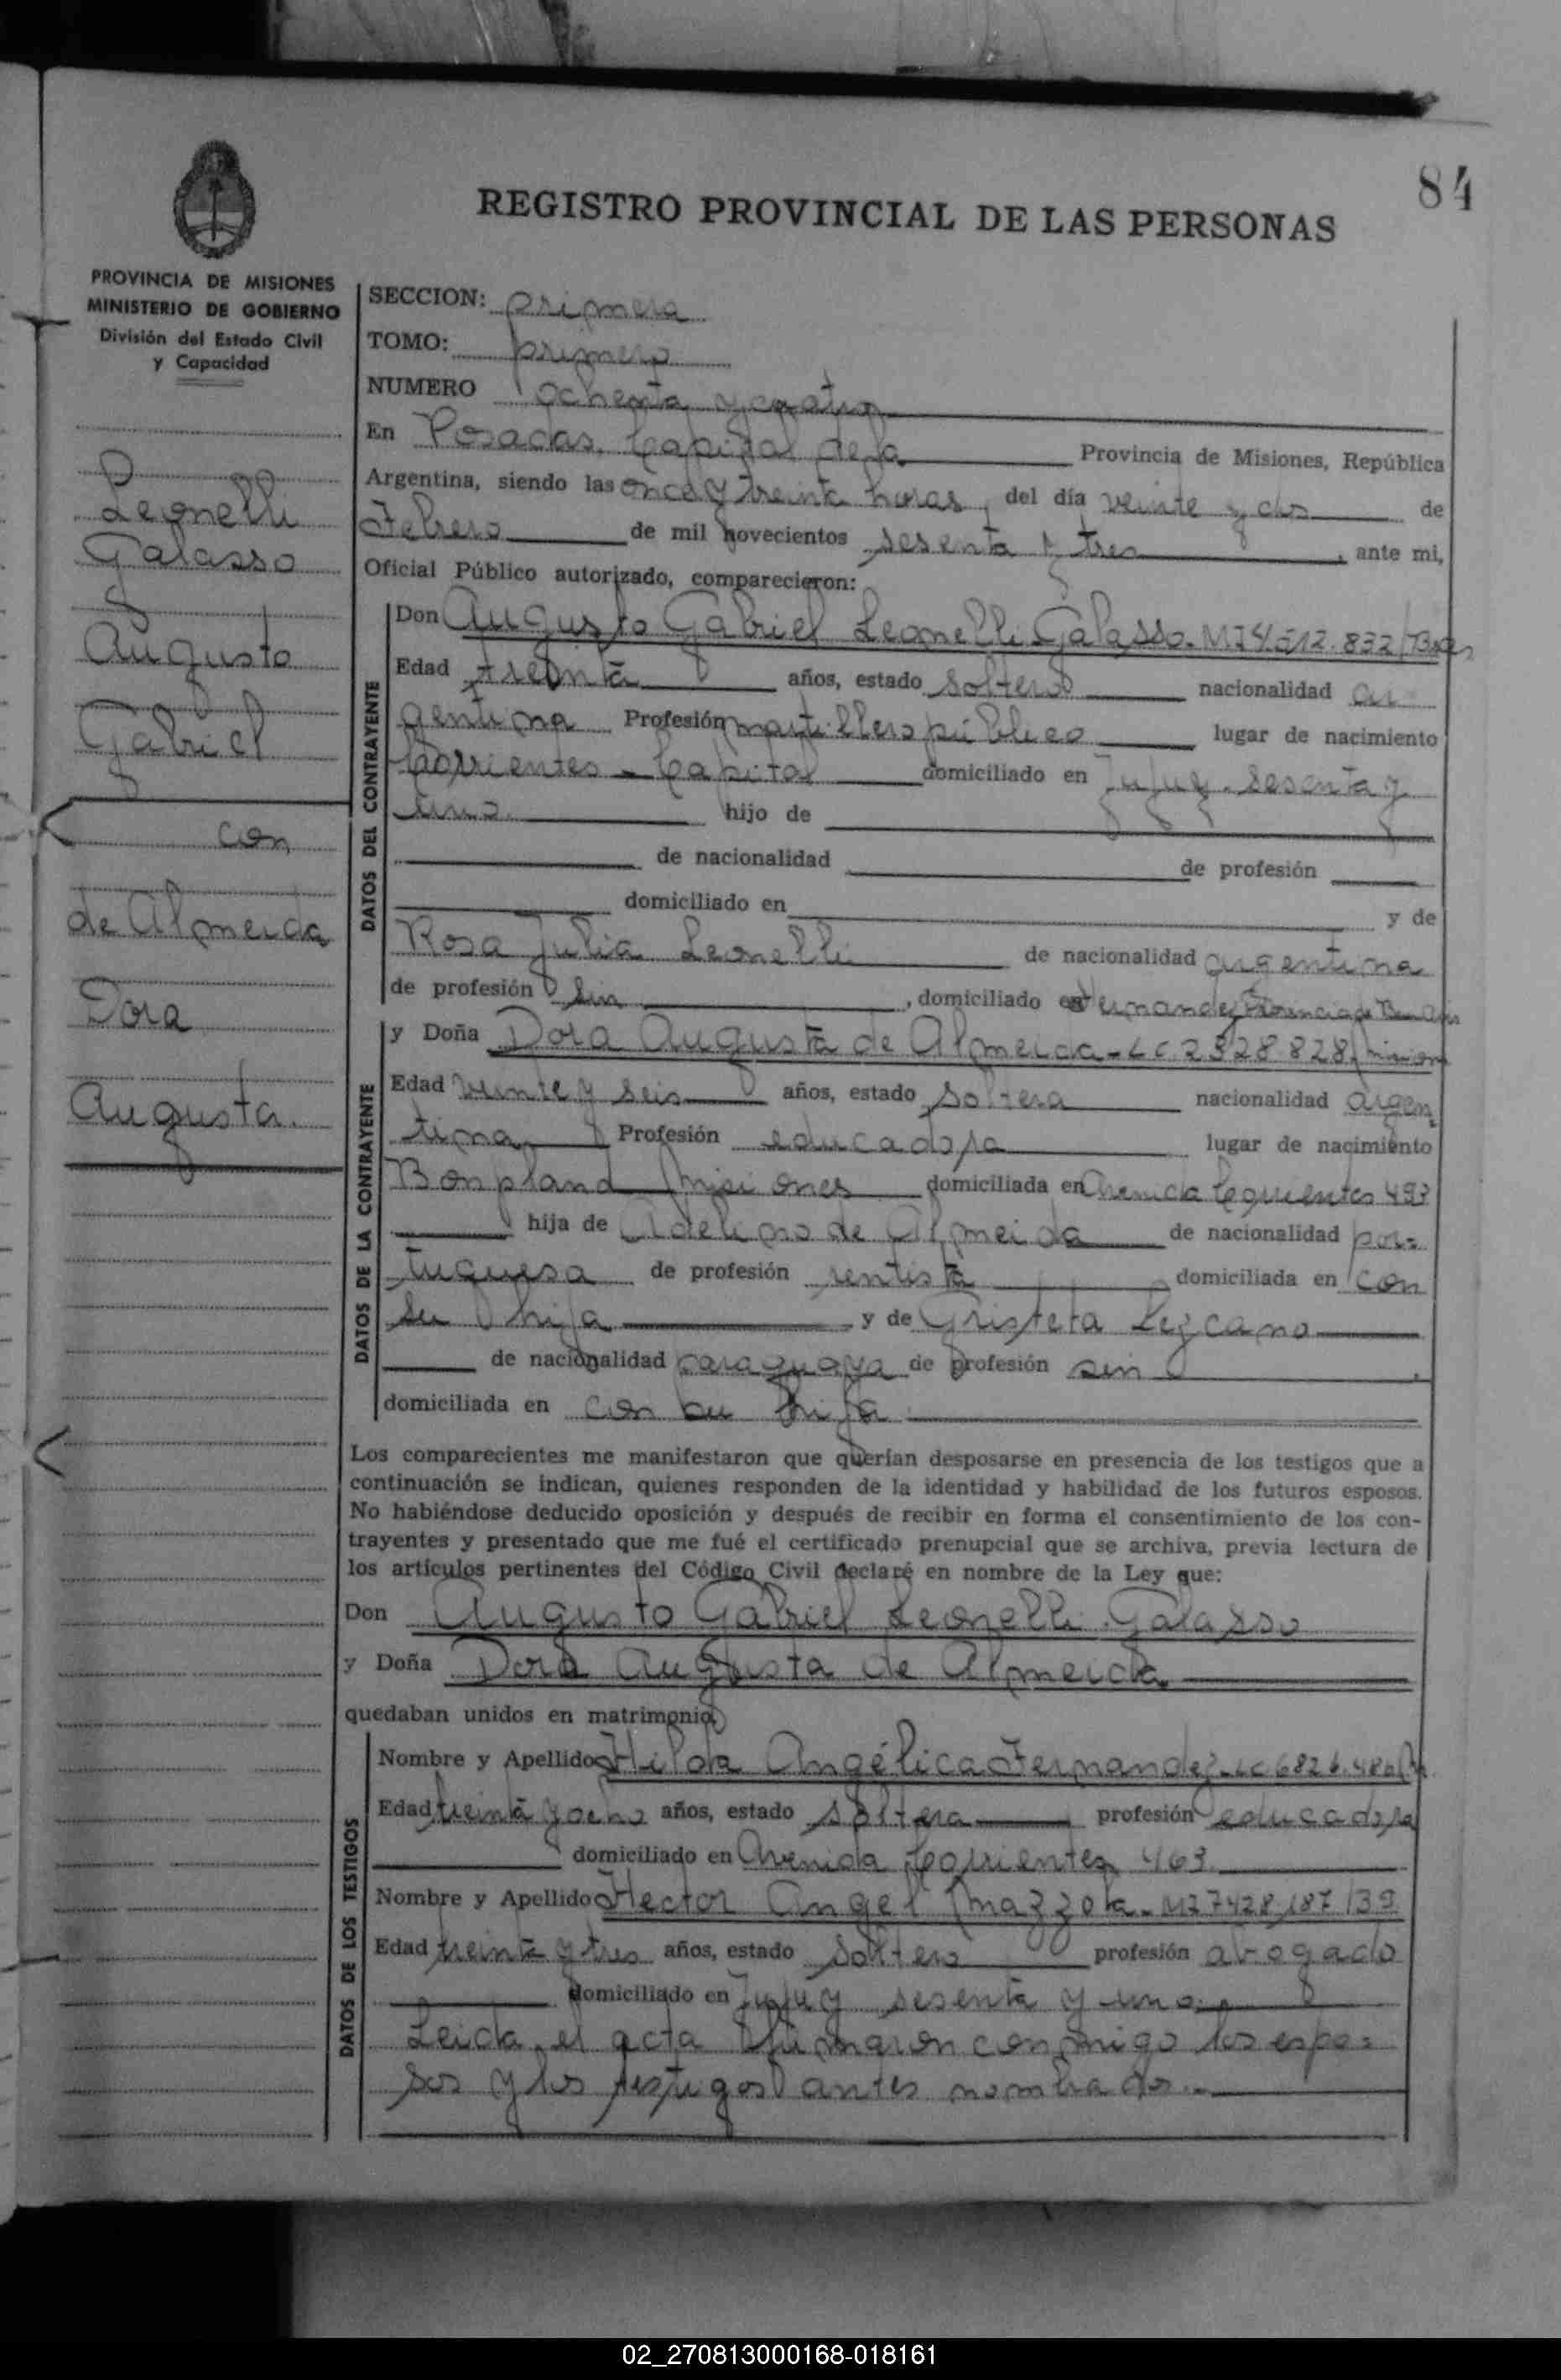 84
REGISTRO PROVINCIAL DE LAS PERSONAS
PROVINCIA DE MISIONES
MINISTERIO DE GOBIERNO
División del Estado Civil
y Capacidad
Leonelli
Galasso
Augusto
Gabriel
con
de Almeida
Dora
Augusta.
SECCION: primera
TOMO: primero
NUMERO ochenta y cuatro
En Posadas, Capital de la Provincia de Misiones, República
Argentina, siendo las once y treinta horas, del día veinte y dos de
Febrero de mil novecientos sesenta y tres, ante mi,
Oficial Público autorizado, comparecieron:
DATOS DEL CONTRAYENTE
Don Augusto Gabriel Leonelli Galasso. MI 4.512.832/
Edad treinta años, estado soltero nacionalidad ar
gentina Profesión martillero público lugar de nacimiento
Corrientes - Capital domiciliado en Jujuy. sesenta y
uno. hijo de
de nacionalidad de profesión
domiciliado en y de
Rosa Julia Leonelli de nacionalidad argentina
de profesión sin, domiciliado en
DATOS DE LA CONTRAYENTE
y Doña Dora Augusta de Almeida - LC 2328828
Edad veinte y seis años, estado soltera nacionalidad argen
tina Profesión educadora lugar de nacimiento
Bonpland Misiones domiciliada en Avenida Corrientes 493
hija de Adelino de Almeida de nacionalidad por=
tuguesa de profesión rentista domiciliada en con
su hija y de Gristeta Lezcano
de nacionalidad paraguaya de profesión sin
domiciliada en con su hija
Los comparecientes me manifestaron que querían desposarse en presencia de los testigos que a
continuación se indican, quienes responden de la identidad y habilidad de los futuros esposos.
No habiéndose deducido oposición y después de recibir en forma el consentimiento de los con-
trayentes y presentado que me fué el certificado prenupcial que se archiva, previa lectura de
los artículos pertinentes del Código Civil declaré en nombre de la Ley que:
Don Augusto Gabriel Leonelli Galasso
y Doña Dora Augusta de Almeida
quedaban unidos en matrimonio
DATOS DE LOS TESTIGOS
Nombre y Apellido Hilda Angélica Fernandez - LC 6826.486
Edad treinta y ocho años, estado soltera profesión educadora
domiciliado en Avenida Corrientes 463.
Nombre y Apellido Hector Angel Mazzola - MI 7428187/39
Edad treinta y tres años, estado soltero profesión abogado
domiciliado en Jujuy sesenta y uno.
Leida el acta firmaron conmigo los espo=
sos y los testigos antes nombrados.
02_270813000168-018161